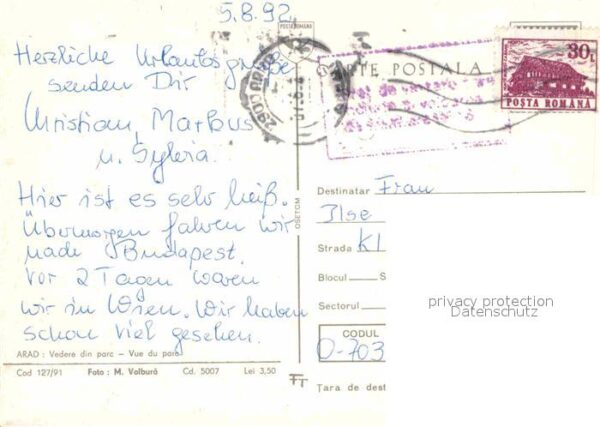 5.8.92
Herzliche Urlaubsgrüße
senden Dir
Christian, Markus
u. Sylvia.
Hier ist es sehr heiß.
Übermorgen fahren wir
nach Budapest.
Vor 2 Tagen waren
wir in Wien. Wir haben
schon viel gesehen.
ARAD : Vedere din parc — Vue du parc
Cod 127/91 Foto : M. Volbură Cd. 5007 Lei 3,50
POSTA ROMÂNĂ
CARTE POSTALA
30L
POSTA ROMANA
2900 ARAD
OSETOM
Destinatar Frau
Ilse
Strada Kl
Blocul S
Sectorul
privacy protection
Datenschutz
CODUL
D-703
Tara de dest